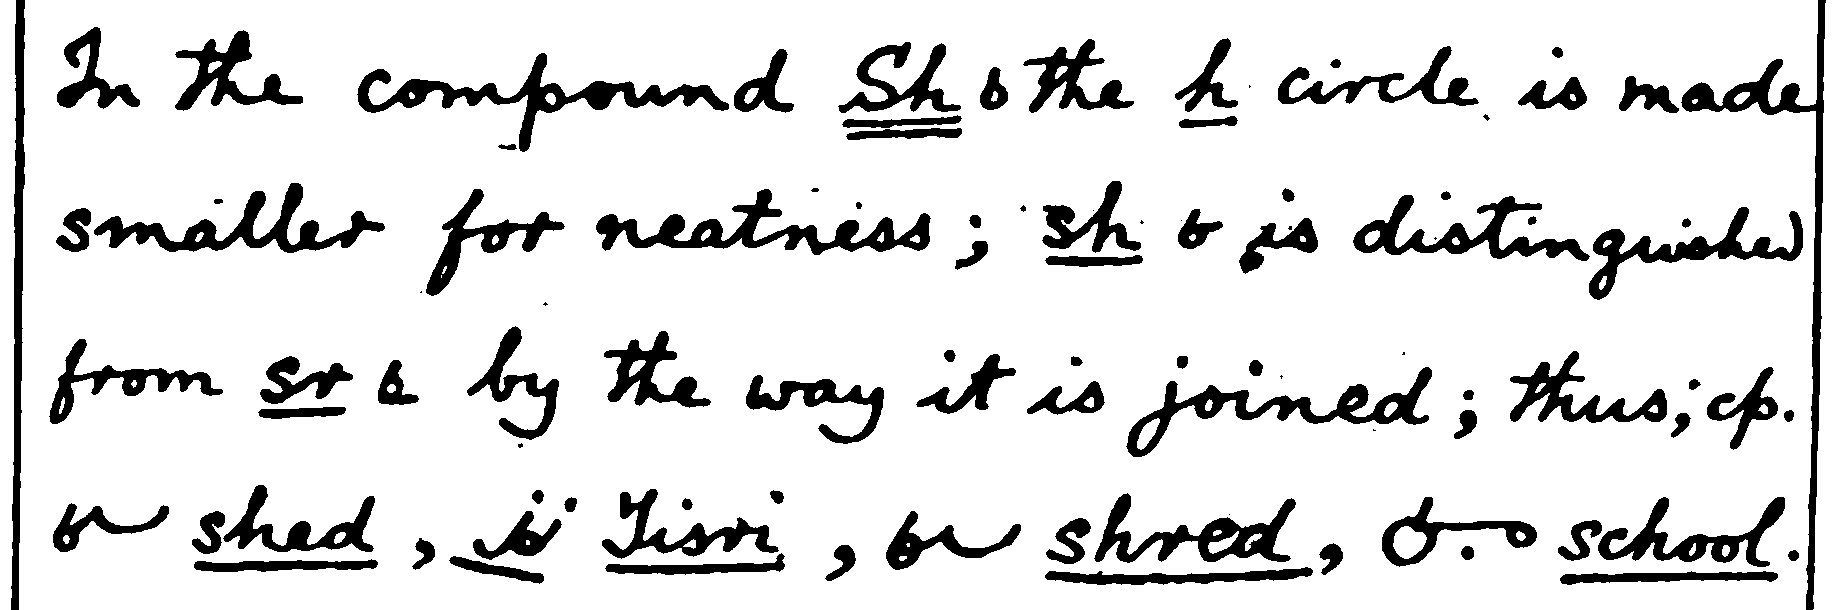 In the compound Sh the h circle is made
smaller for neatness; sh is distinguished
from sr by the way it is joined; thus; cp.
shed, Tisri, shred, school.